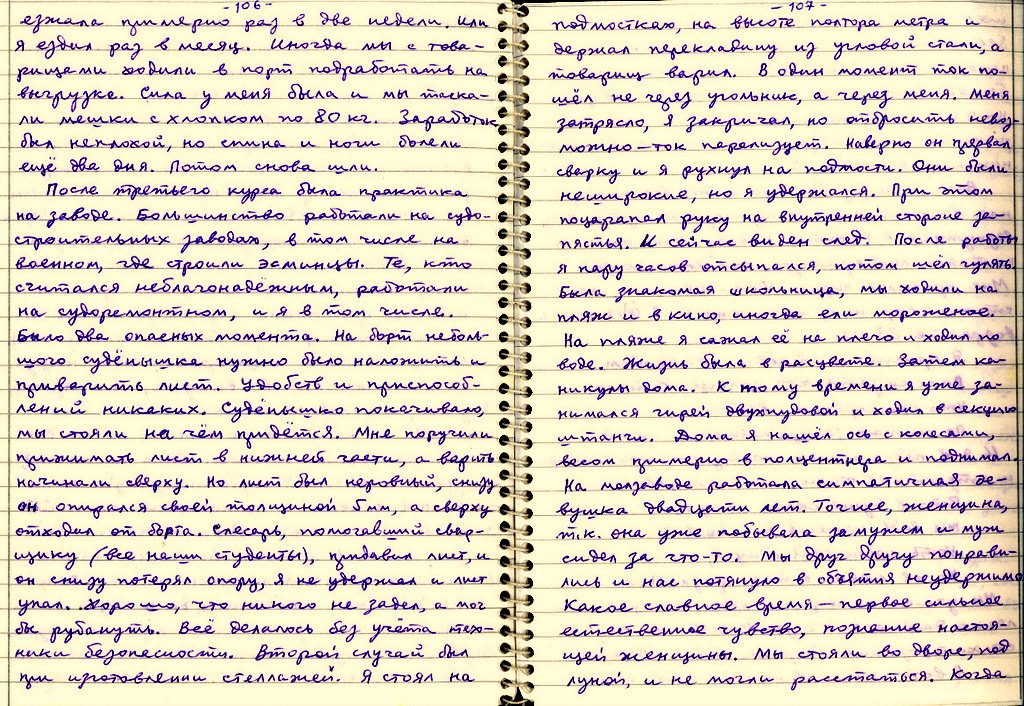 - 106 -
езжала примерно раз в две недели. Или
я ездил раз в месяц. Иногда мы с това-
рищами ходили в порт подработать на
выгрузке. Сила у меня была и мы таска-
ли мешки с хлопком по 80 кг. Заработок
был неплохой, но спина и ноги болели
ещё два дня. Потом снова шли.
После третьего курса была практика
на заводе. Большинство работали на судо-
строительных заводах, в том числе на
военном, где строили эсминцы. Те, кто
считался неблагонадёжным, работали
на судоремонтном, и я в том числе.
Было два опасных момента. На борт неболь-
шого судёнышка нужно было наложить и
приварить лист. Удобств и приспособ-
лений никаких. Судёнышко покачивало,
мы стояли на чём придётся. Мне поручили
прижимать лист в нижней части, а варить
начинали сверху. Но лист был неровный, снизу
он опирался своей толщиной 5мм, а сверху
отходил от борта. Слесарь, помогавший свар-
щику (все наши студенты), придавил лист, и
он снизу потерял опору, я не удержал и лист
упал. Хорошо, что никого не задел, а мог
бы рубануть. Всё делалось без учёта тех-
ники безопасности. Второй случай был
при изготовлении стеллажей. Я стоял на
- 107 -
подмостках, на высоте полтора метра и
держал перекладину из угловой стали, а
товарищ варил. В один момент ток по-
шёл не через угольник, а через меня. Меня
затрясло, я закричал, но отбросить невоз-
можно — ток парализует. Наверно он прервал
сварку и я рухнул на подмости. Они были
неширокие, но я удержался. При этом
поцарапал руку на внутренней стороне за-
пястья. И сейчас виден след. После работы
я пару часов отсыпался, потом шёл гулять.
Была знакомая школьница, мы ходили на
пляж и в кино, иногда ели мороженое.
На пляже я сажал её на плечо и ходил по
воде. Жизнь была в расцвете. Затем ка-
никулы дома. К тому времени я уже за-
нимался гирей двухпудовой и ходил в секцию
штанги. Дома я нашёл ось с колёсами,
весом примерно в полцентнера и поднимал.
На молзаводе работала симпатичная де-
вушка двадцати лет. Точнее, женщина,
т.к. она уже побывала замужем и муж
сидел за что-то. Мы друг другу понрави-
лись и нас потянуло в объятия неудержимо.
Какое славное время — первое сильное
естественное чувство, познание настоя-
щей женщины. Мы стояли во дворе, под
луной, и не могли расстаться. Когда